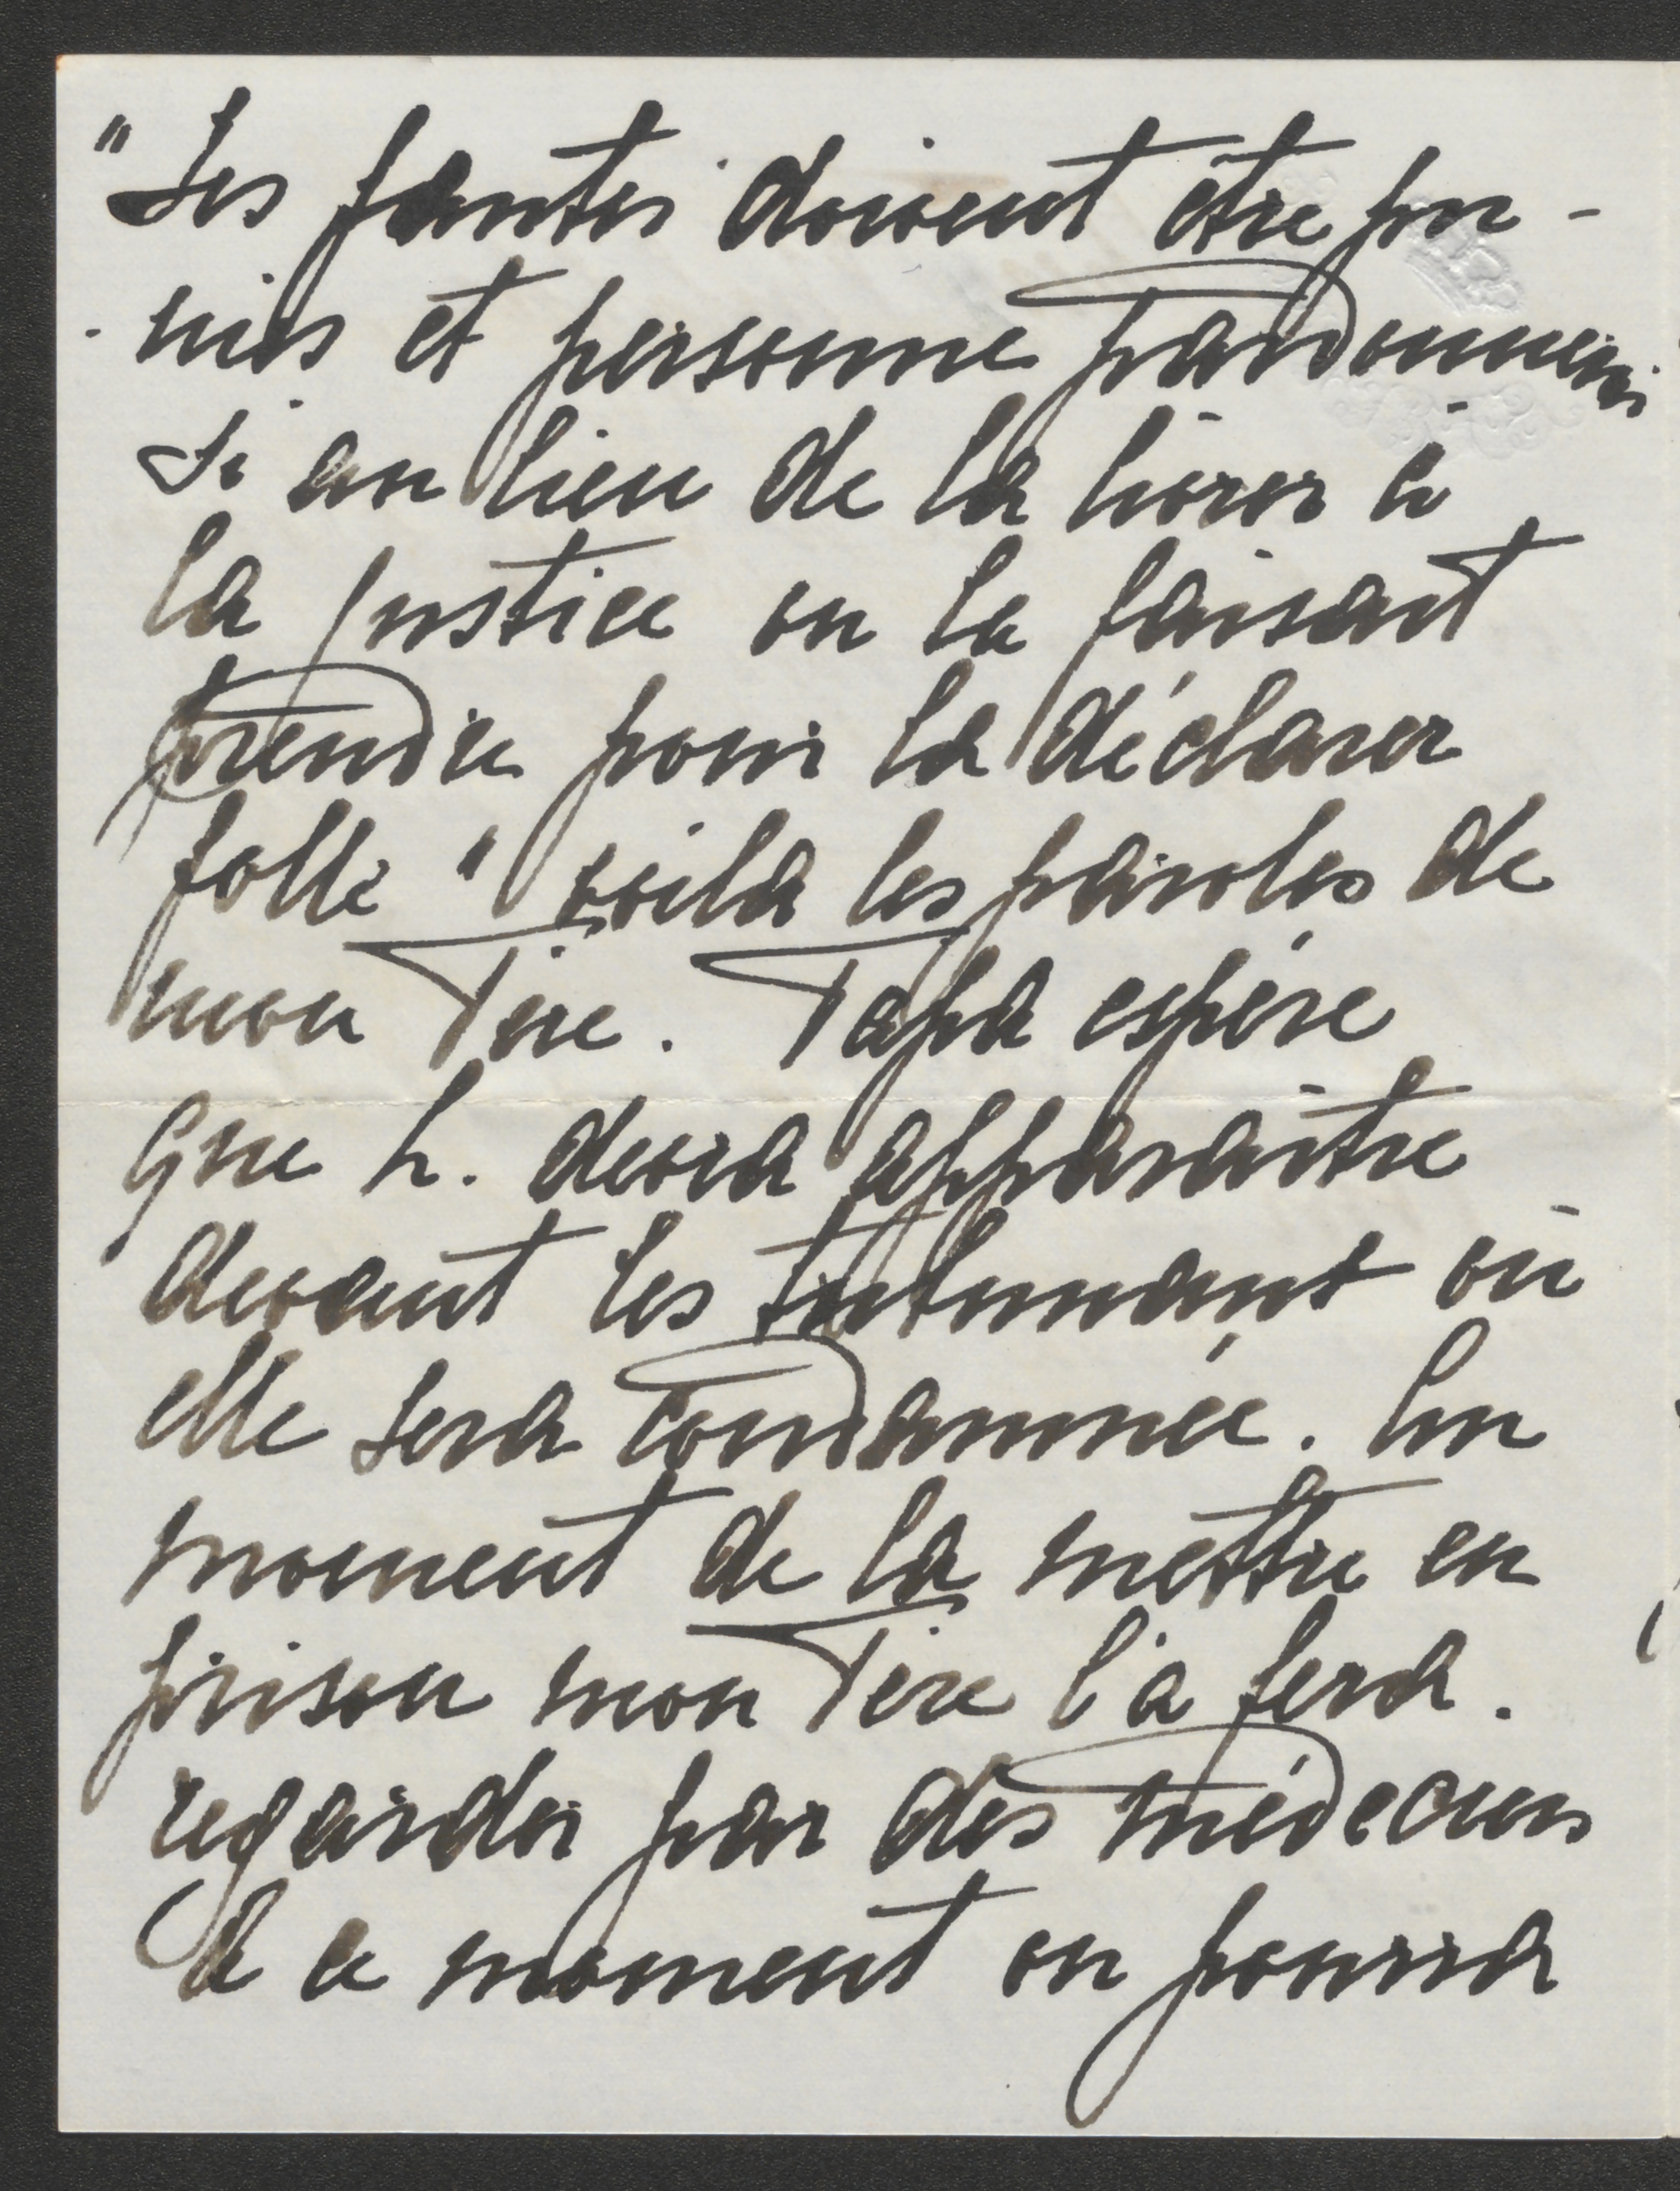 "Ses fautes doivent être pu-
-nies et personne pardonnerai
si au lieu de la livrer à
la justice on la faisait
prendre pour la déclarer
folle" voila les paroles de
mon Père. Papa espère
que L. devra apparaître
devant les où
elle sera condamnée. Au
moment de la mettre en
prison mon Père l'a fera.
regarder par des médecins
à ce moment on pourra